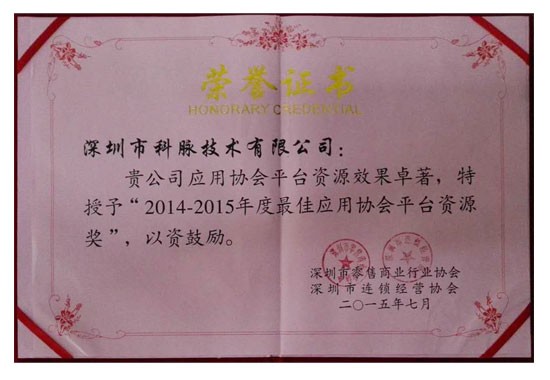 荣誉证书
HONORARY CREDENTIAL
深圳市科脉技术有限公司：
贵公司应用协会平台资源效果卓著，特
授予“2014-2015年度最佳应用协会平台资源
奖”，以资鼓励。
深圳市零售商业行业协会
深圳市连锁经营协会
二〇一五年七月